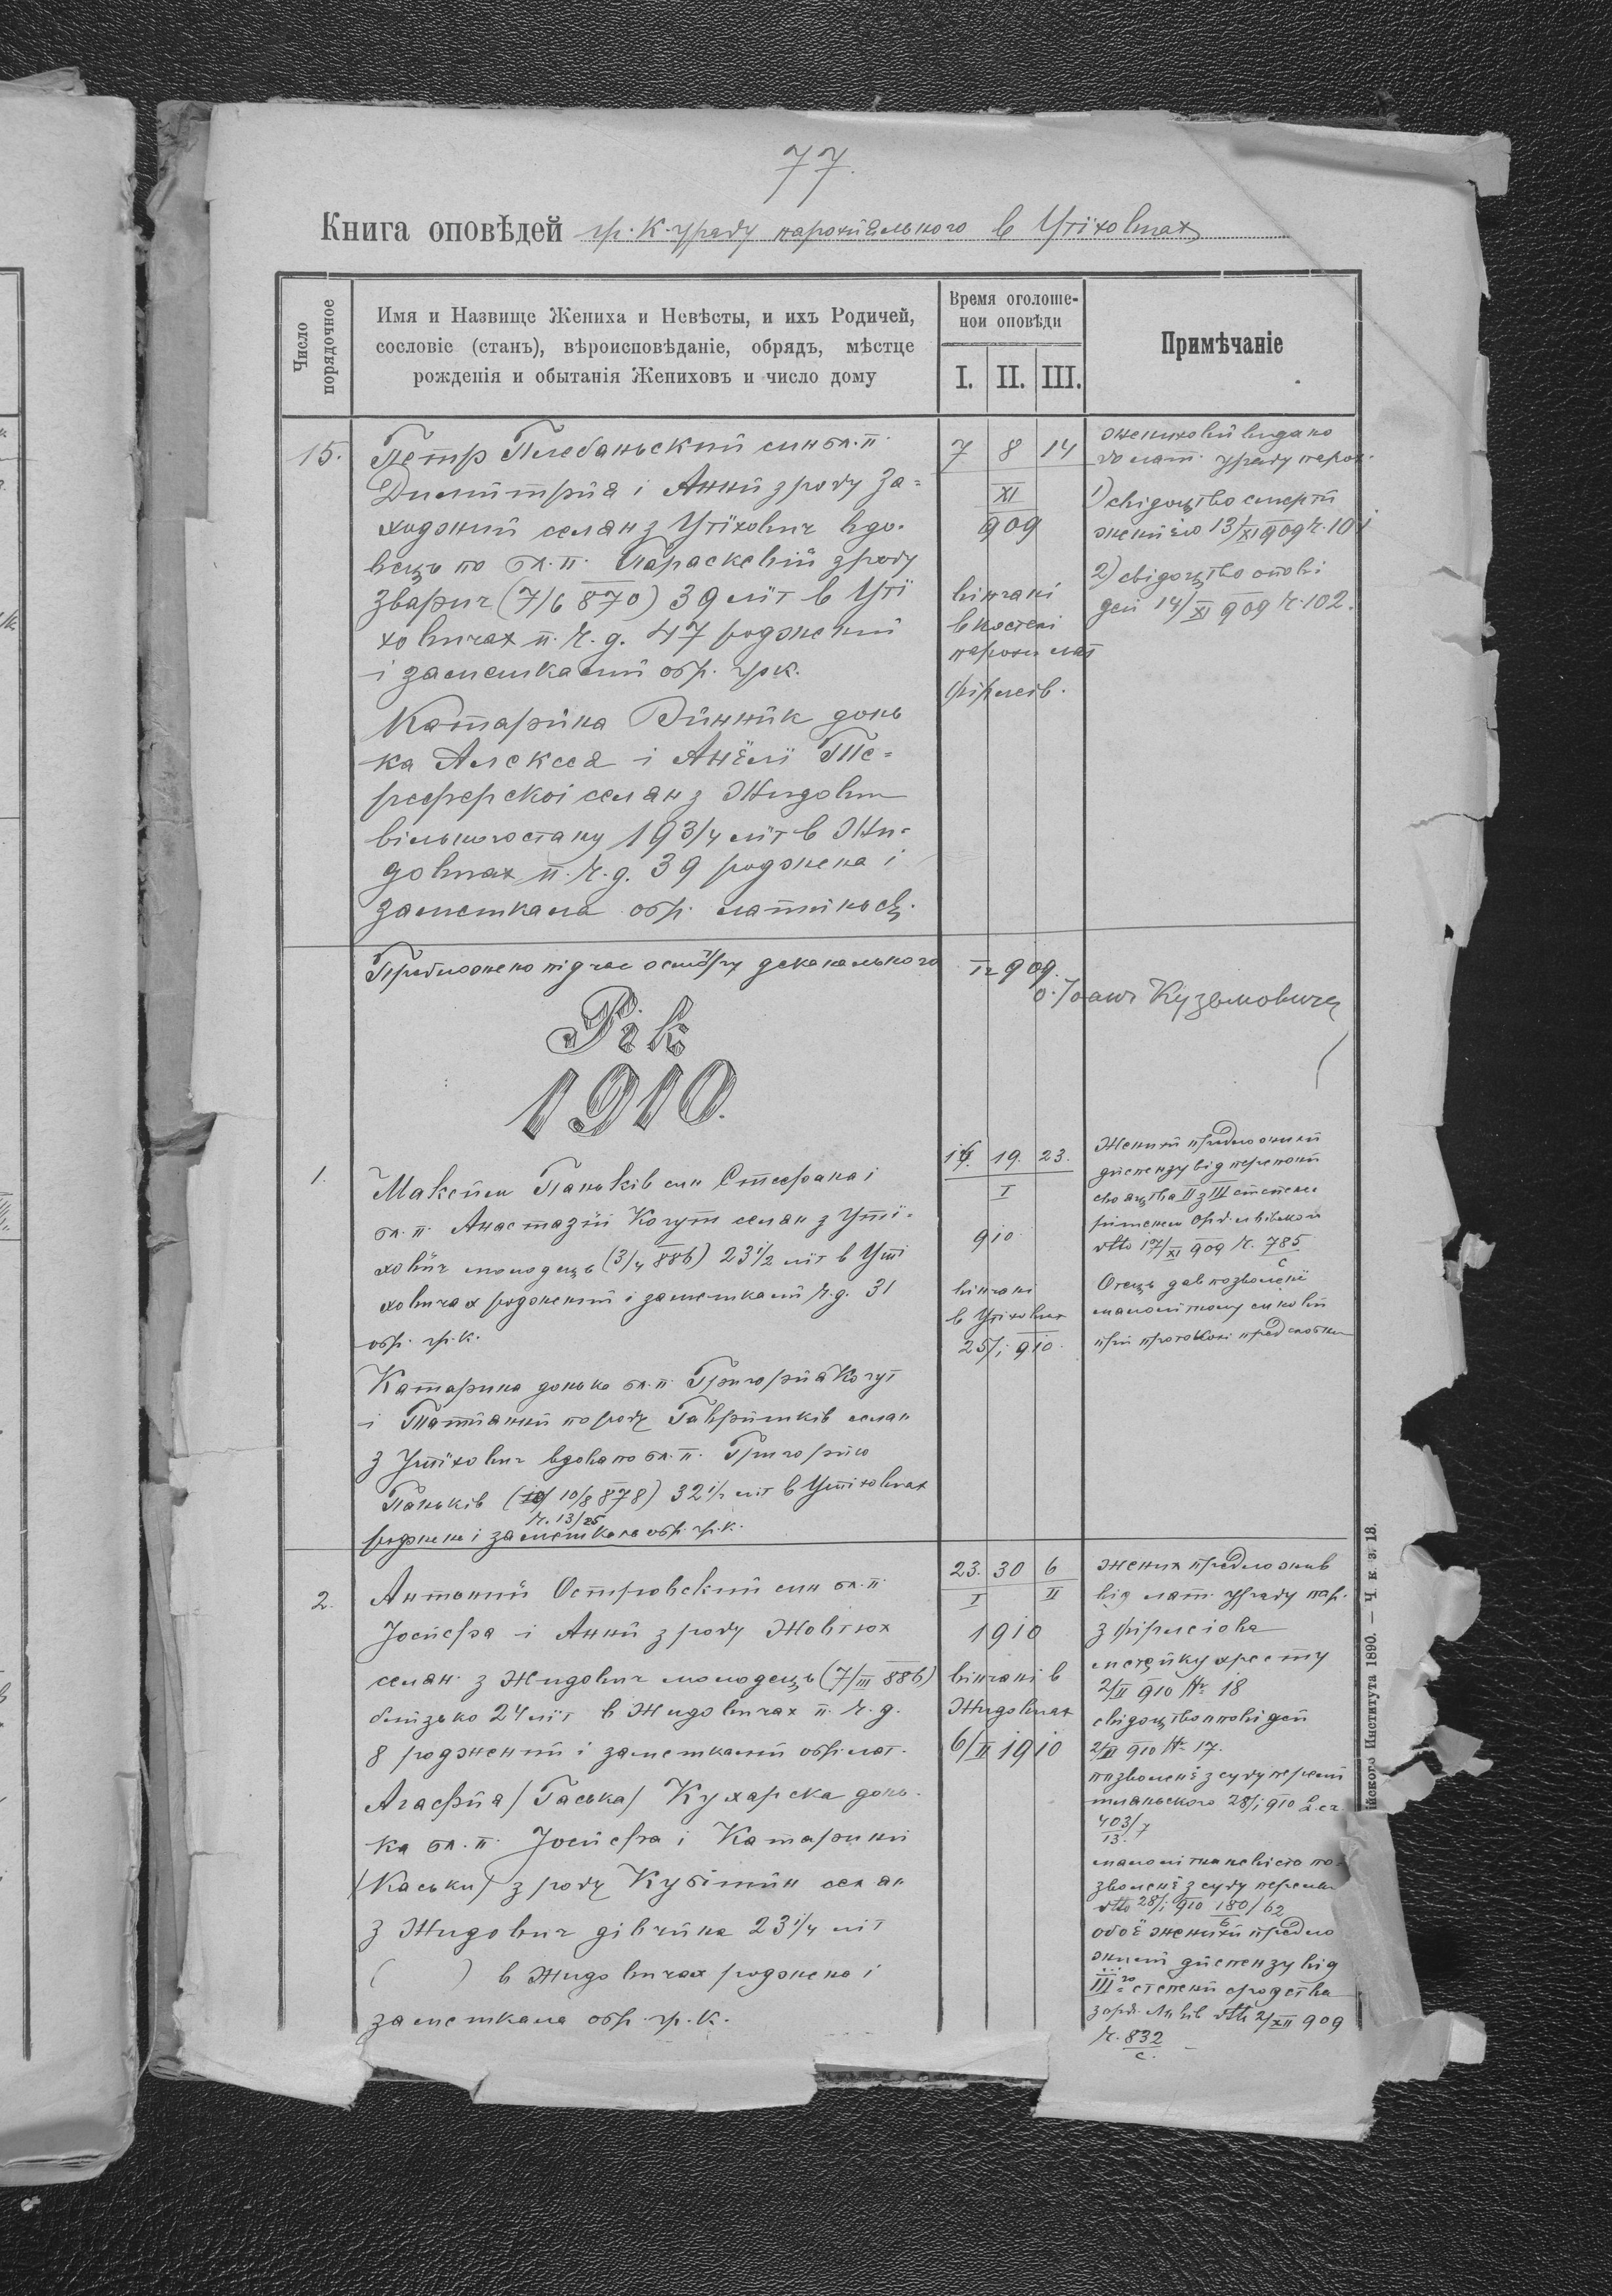 77.
Книга оповѣдей гр. к. уряду парохіяльного в Утїховичах
Число порядочное
Имя и Назвище Жениха и Невѣсты, и ихъ Родичей,
сословіє (станъ), вѣроисповѣданіе, обрядъ, мѣстце
рожденія и обытанія Жениховъ и число дому
Время оголоше-
нои оповѣди
I. II. III.
Примѣчаніе
15.
Петр Плебаньский син бл. п.
Димитрія і Анни з роду За=
ходжий селян з Утїхович вдо-
вець по бл. п. Параскевії з роду
Зварич (7/6 870) 39 лїт в Утї
ховичах п. ч. д. 47 роджений
і замешкалий обр. грк.
Катарина Винник донь
ка Алексея і Анелї Те=
реферскої селян з Жидович
вільного стану 19 3/4 лїт в Жи-
довичах п. ч. д. 39 роджена і
замешкала обр. латиньск.
7 8 14
XI
909
вінчані
в костелі
парохи. лат
Фірлеїв.
женихови видано
до лат. уряду парох.
1) свідоцтво смерти
жени єго 13/XI 909 ч. 101
2) свідоцтво опові
дей 14/XI 909 ч. 102.
Предложено підчас осмотру деканального
909.
о. Іоанъ Кузьмовичъ
Рік
1910.
1.
Максим Паньків син Стефана і
бл. п. Анастазії Когут селян з Утї-
хович молодець (3/4 886) 23 1/2 лїт в Утї
ховичах роджений і замешкалий ч. д. 31
обр. гр. к.
Катарина донька бл. п. Григорія Когут
і Татіанни по роду Гаврилків селян
з Утїхович вдова по бл. п. Григорію
Паньків (10/8 878) 32 1/2 лїт в Утїховичах
ч. 13/25
роджена і замешкала обр. гр. к.
16. 19. 23.
I
910
вінчані
в Утїховичах
25/I 910.
Женихи предложили
диспензу від перепони
свояцтва II з III степени
рішенєм Орд. львівского
dtto 17/XI 909 ч. 785
с
Отець дав позволенє
малолітному синови
при протоколі предслюбнім
2.
Антоний Островский син бл. п.
Йосифа і Анни з роду Жовтюх
селян з Жидович молодець (7/III 886)
близько 24 лїт в Жидовичах п. ч. д.
8 роджений і замешкалий обр. лат.
Агафія / Гаська / Кухарска донь-
ка бл. п. Йосифа і Катарини
/ Каськи / з роду Кубішин селян
з Жидович дівчина 23 1/4 лїт
( ) в Жидовичах роджена і
замешкала обр. гр. к.
23. 30 6
I II
1910
вінчані в
Жидовичах
6/II 1910
жених предложив
від лат. уряду пар.
з Фірлеїова
метрику хресту
2/II 910 № 18
свідоцтво оповідей
2/II 910 № 17.
позволенє з суду перемиш
лянського 28/I 910
403/7
13.
малолітна невіста по-
зволенє з суду перемш
dtto 28/I 910 180/62
6
обоє женихи предло
жили диспензу від
III го степени сродства
з орд. Львів dtto 2/XII 909
ч. 832
с.
ійского Института 1890. — Ч. к. з. 18.